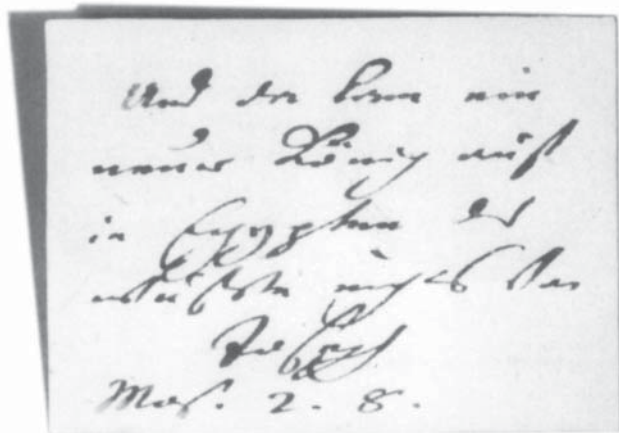 Und da kam ein
neuer König auf
in Egypten der
wußte nichts von
Joseph
Mos. 2. 8.